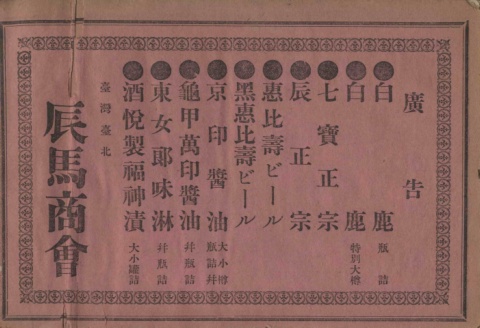 廣告
白鹿 瓶詰
白鹿 特別大樽
七寶正宗
辰正宗
惠比壽ビール
黑惠比壽ビール
京印醬油 大小樽瓶詰拜
龜甲萬印醬油 拜瓶詰
東女郎味淋 拜瓶詰
酒悅製福神漬 大小罐詰
臺灣臺北
辰馬商會